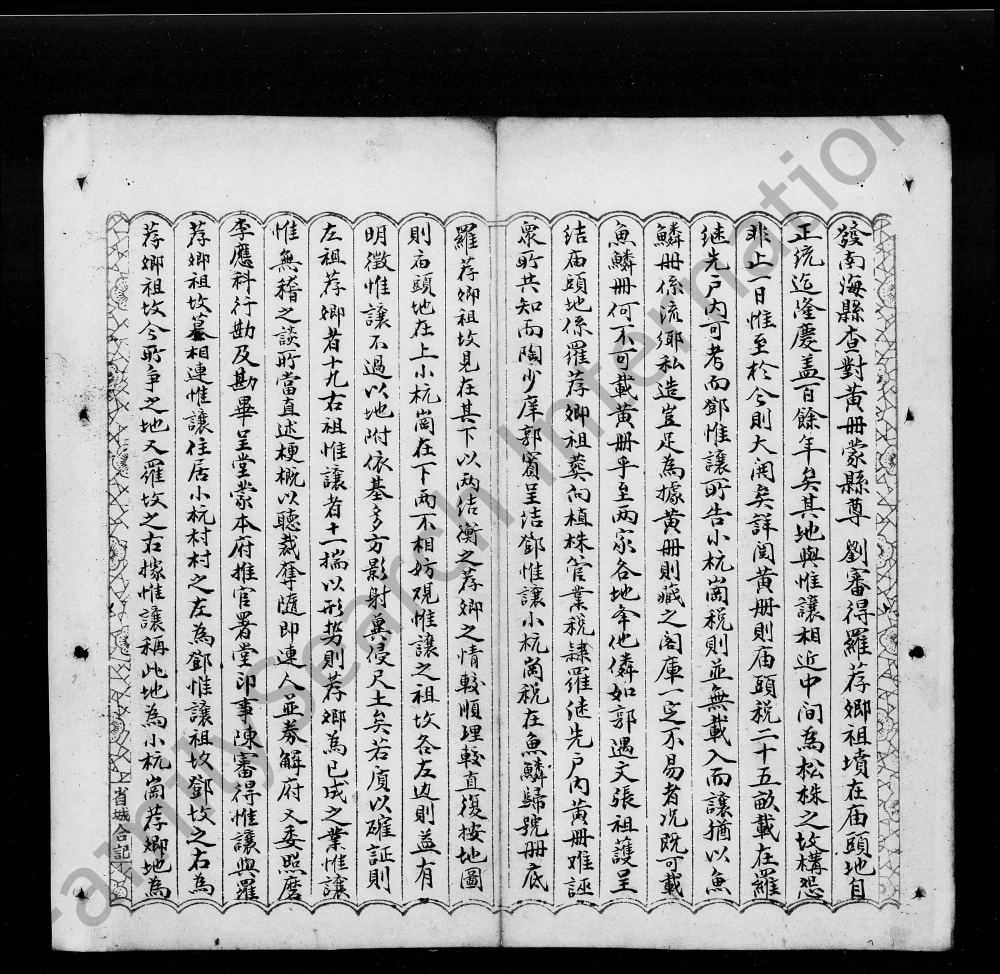 發南海縣查對黃冊蒙縣尊 劉審得羅荐卿祖墳在庙頭地自
正統迄隆慶盖百餘年矣其地與惟讓相近中间為松株之坟構怨
非止一日惟至於今則大闹矣詳閲黃册則庙頭税二十五畝載在羅
继先户内可考而鄧惟讓所告小杭崗税則並無載入而讓猶以魚
鱗册係流鄉私造豈足為據黃册則藏之阁庫一定不易者况既可載
魚鱗册何不可載黃册乎至两家各地牵他隣如郭遇文張祖護呈
结庙頭地係羅荐卿祖葬向植株官業税隷羅继先户内黃册难誣
衆所共知而陶少庠郭賓呈结鄧惟讓小杭崗税在魚鱗歸號册底
羅荐卿祖坟見在其下以两结衡之荐卿之情較順理較直復按地圖
則庙頭地在上小杭崗在下两不相妨覌惟讓之祖坟各左边則益有
明徵惟讓不過以地附依基多方影射兾侵尺土矣若廣以確証則
左祖荐卿者十九右祖惟讓者十一揣以形势則荐卿為已成之業惟讓
惟無稽之談所當直述梗概以聴裁奪随即連人並券解府又委照磨
李應科行勘及勘畢呈堂蒙本府推官署堂印事陳審得惟讓與羅
荐卿祖坟墓相連惟讓住居小杭村村之左為鄧惟讓祖坟鄧坟之右為
荐卿祖坟今所争之地又羅坟之右據惟讓稱此地為小杭崗荐卿地為
省城合記
FamilySearch International